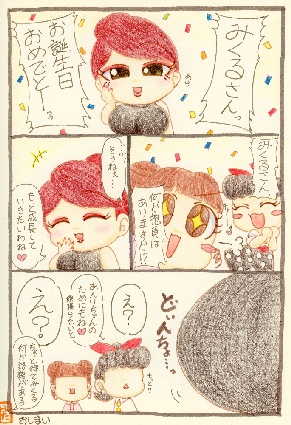 みくるさんっ
お誕生日
おめでとーっ
みくるさん
何か抱負は
ありますか!?
そうねぇ…
もっと成長して
いきたいわね
どいんちょ…っ
え?
あんりちゃんの
ためにもね
え?
ちょっと待てみくる
何か誤解がある
おしまい